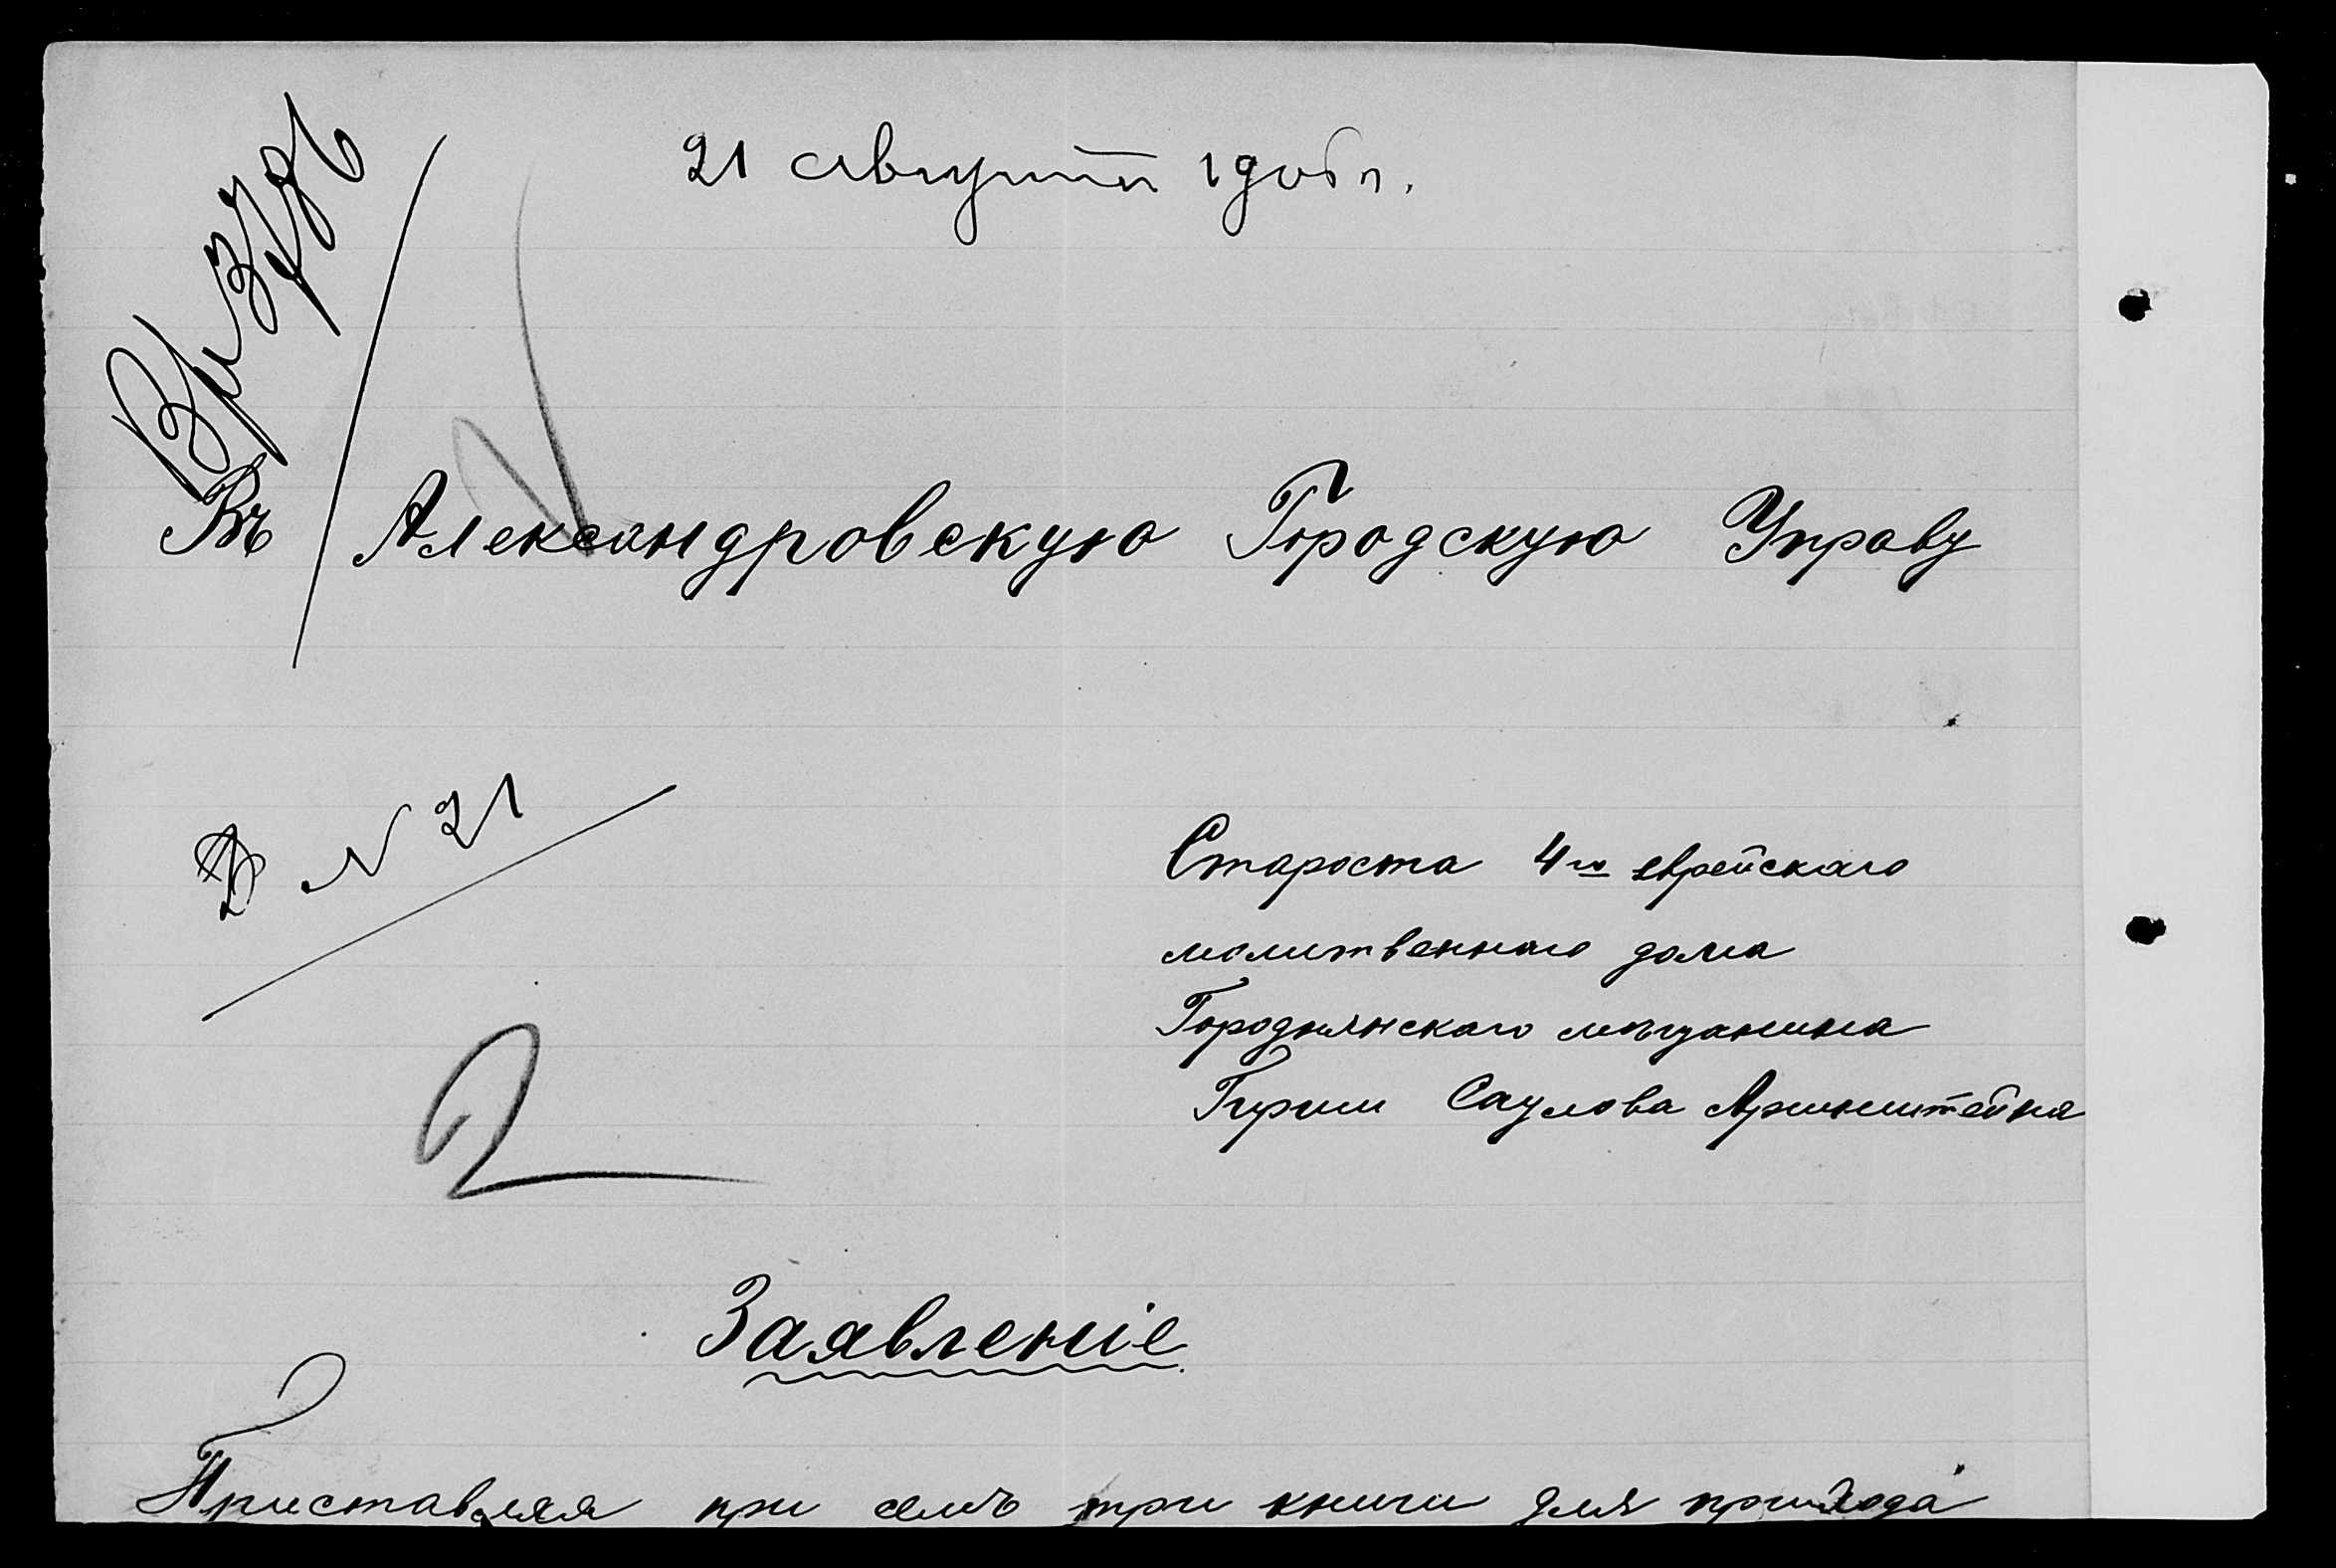 21 августа 1906 г.
Въ Александровскую Городскую Управу
№ 21
Староста 4го еврейскаго
молитвеннаго дома
Городнянскаго мѣщанина
Гирши Саулова Аринштейна
2
Заявленіе
Приставляя при семъ три книги для прихода